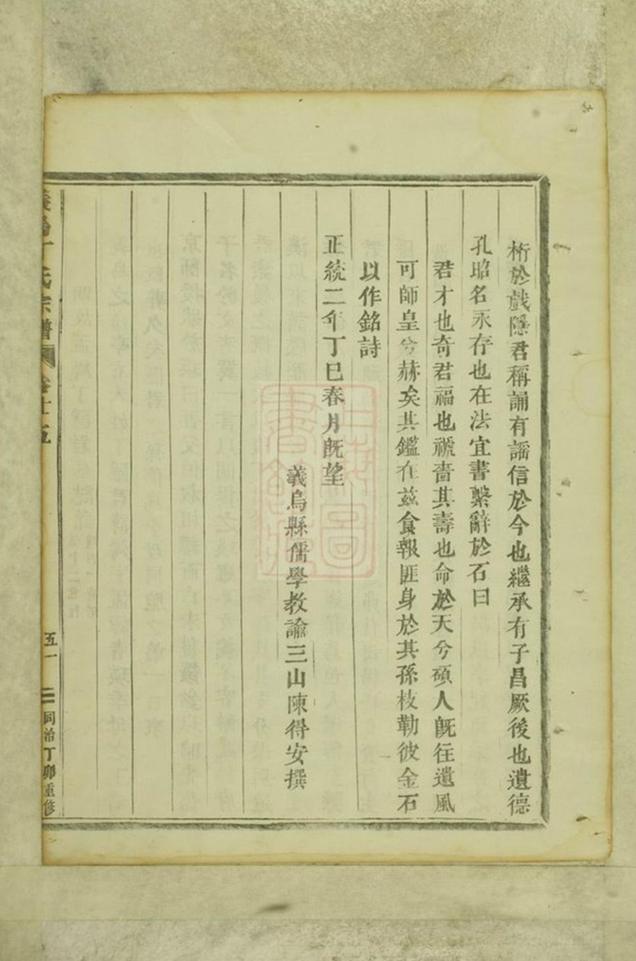 桁於戲隱君稱誦有謡信於今也繼承有子昌厥後也遺德
孔昭名永存也在法宜書繫辭於石曰
君才也奇君福也褫嗇其壽也命於天兮碩人旣往遺風
可師皇兮赫矣其鑑在兹食報匪身於其孫枝勒彼金石
以作銘詩
正統二年丁巳春月旣望
義烏縣儒學教諭三山陳得安撰
義烏丁氏宗譜
卷十五
五一
同治丁卯重修